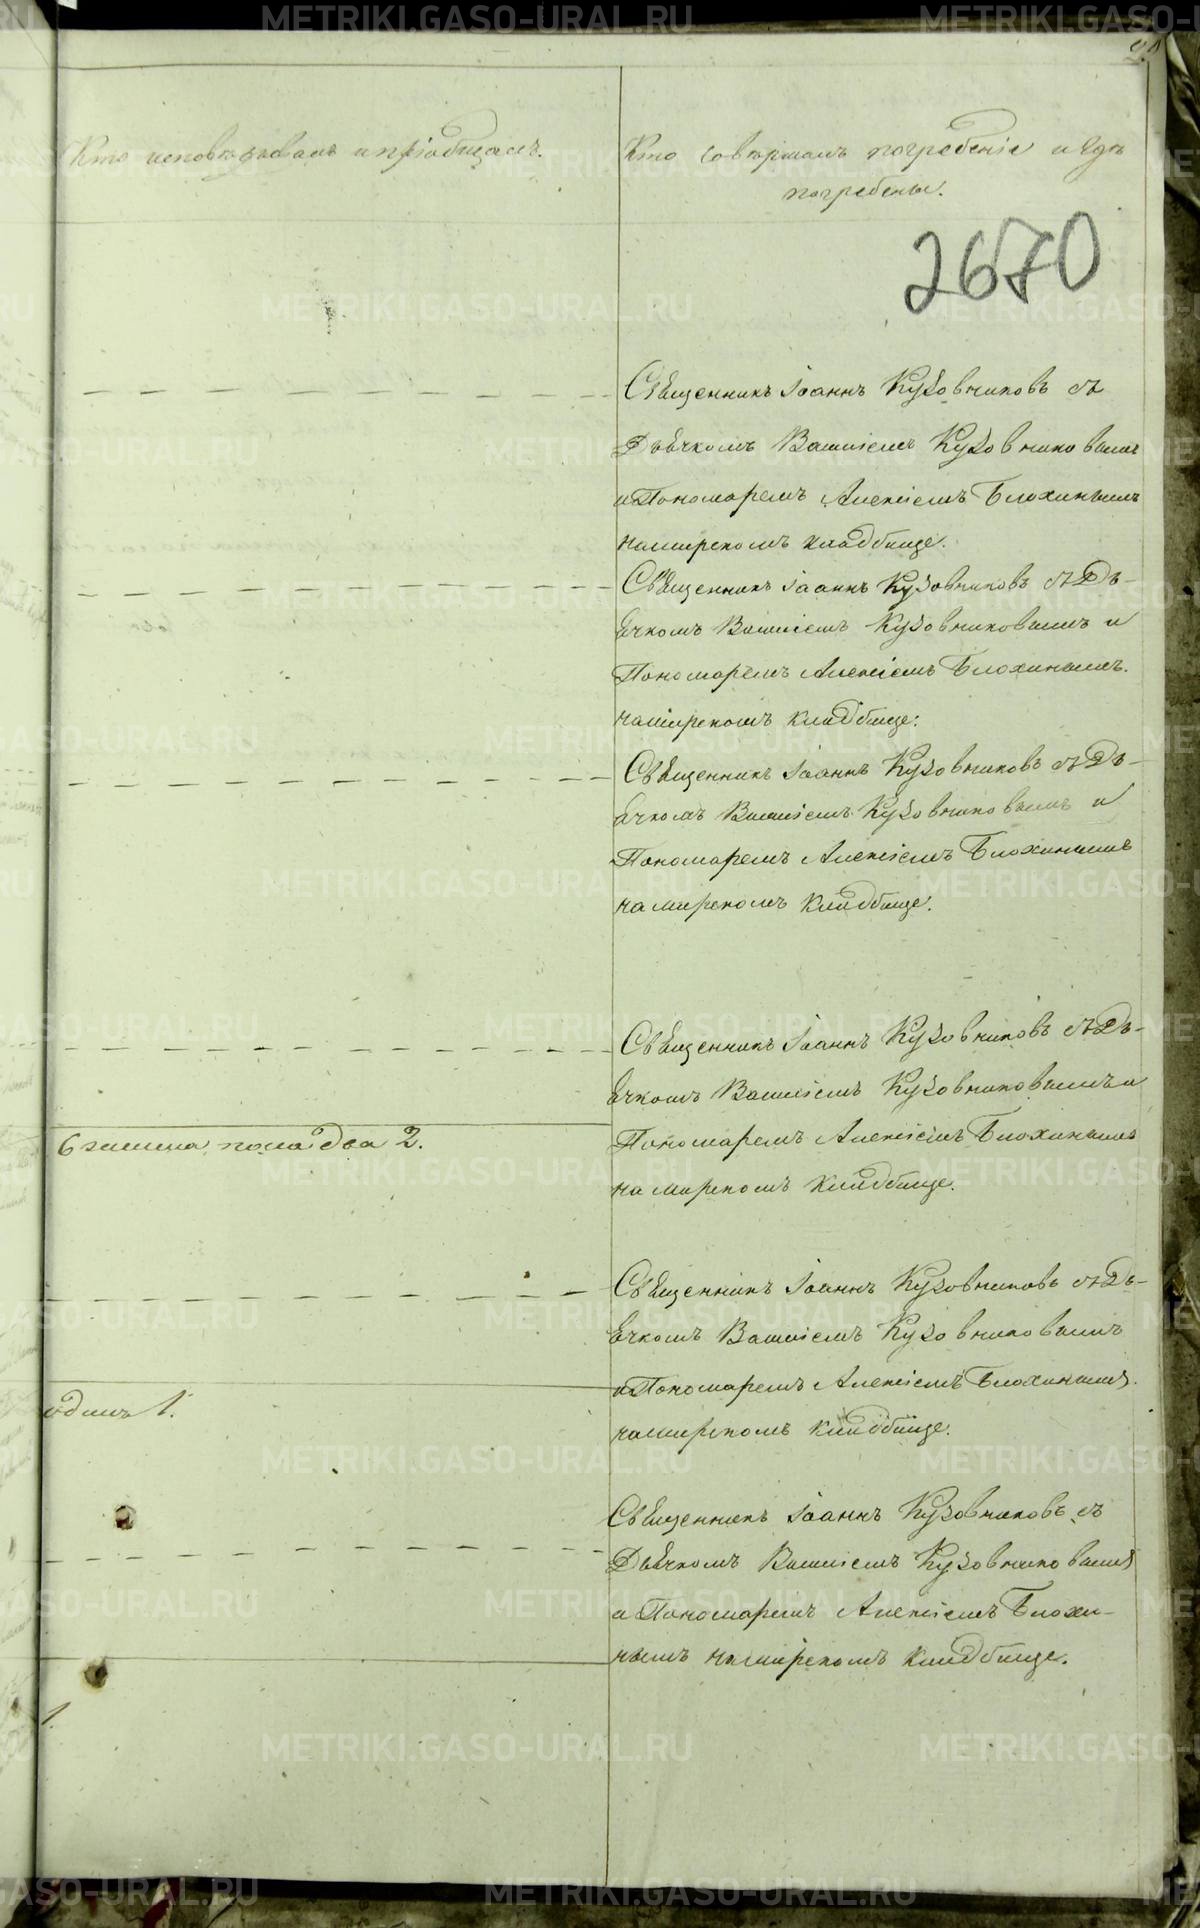 Кто исповѣдывалъ и пріобщалъ.
Кто совершалъ погребеніе и гдѣ
погребены.
2670
Священникъ Іоаннъ Кузовниковъ съ
Дьячкомъ Василіемъ Кузовниковымъ
и Пономаремъ Алексіемъ Блохинымъ
на мирскомъ кладбище.
Священникъ Іоаннъ Кузовниковъ съ Дь-
ячкомъ Василіемъ Кузовниковымъ и
Пономаремъ Алексіемъ Блохинымъ.
на мирскомъ кладбище.
Священникъ Іоаннъ Кузовниковъ съ Дь-
ячкомъ Василіемъ Кузовниковымъ и
Пономаремъ Алексіемъ Блохинымъ
на мирскомъ кладбище.
Священникъ Іоаннъ Кузовниковъ съ Дь-
ячкомъ Василіемъ Кузовниковымъ и
Пономаремъ Алексіемъ Блохинымъ
на мирскомъ кладбище.
пола два 2.
Священникъ Іоаннъ Кузовниковъ съ Дь-
ячкомъ Василіемъ Кузовниковымъ
и Пономаремъ Алексіемъ Блохинымъ.
на мирскомъ кладбище.
одинъ 1.
Священникъ Іоаннъ Кузовниковъ съ
Дьячкомъ Василіемъ Кузовниковымъ
и Пономаремъ Алексіемъ Блохи-
нымъ на мирскомъ кладбище.
1.
METRIKI.GASO-URAL.RU